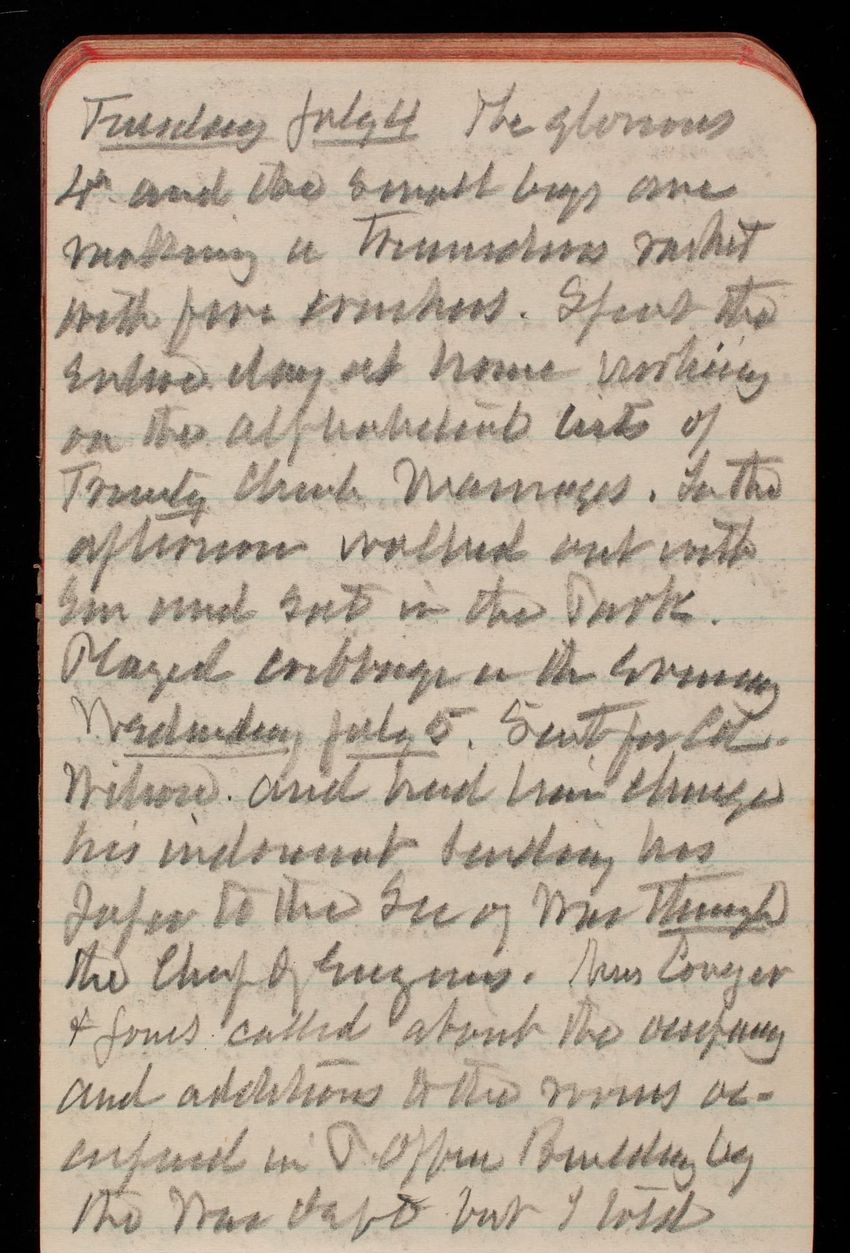 Tuesday July 4 The glorious
4th and the small boys are
making a tremendous racket
with fire crackers. Spent the
entire day at home working
on the alphabetical lists of
Trinity Church Marriages. In the
afternoon walked out with
Em and sat in the Park.
Played cribbage in the evening
Wednesday July 5. Sent for Col.
Wilson and had him change
his indorsement sending his
paper to the Sec of War through
the Chief of Engineers. Messrs
& Jones called about the
and additions to the rooms oc-
cupied in P. Office Building by
the War Dept but I told